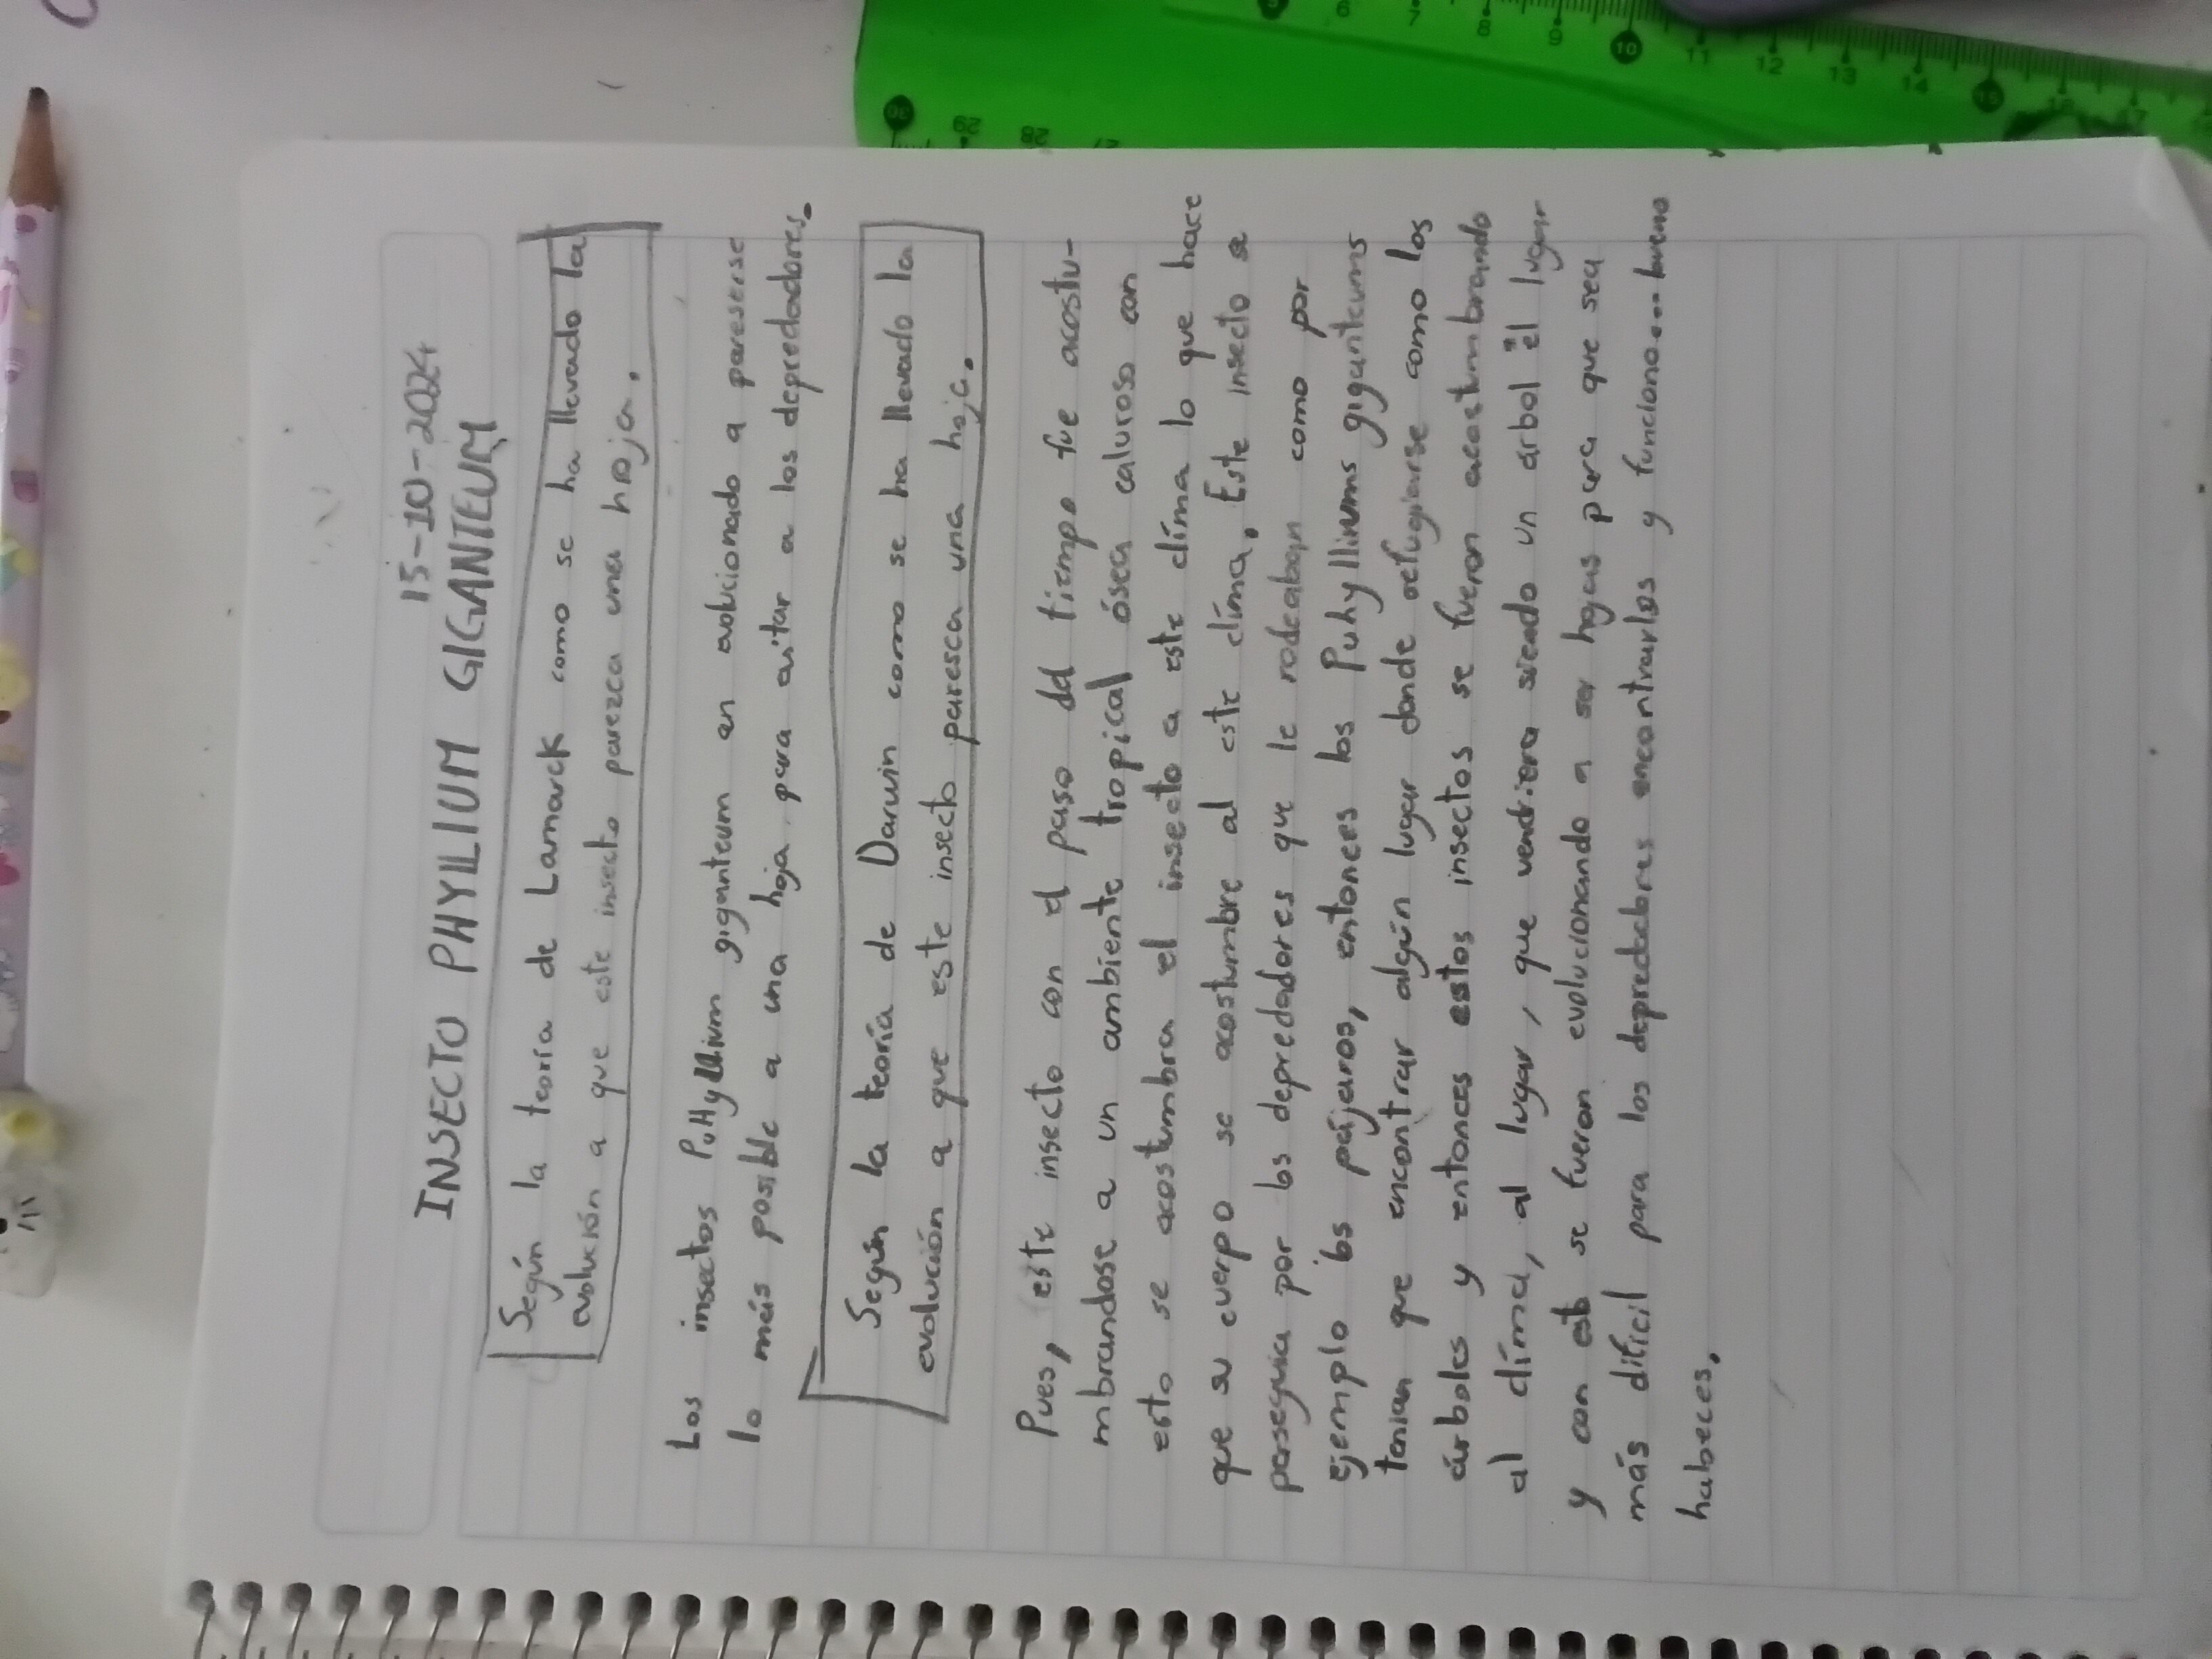 15-10-2024
INSECTO PHYLLIUM GIGANTEUM
Según la teoría de Lamarck como se ha llevado la
evolución a que este insecto parezca una hoja.
Los insectos PuHyllium giganteum an evolucionado a pareserse
lo más posible a una hoja para evitar a los depredadores.
Según la teoría de Darwin como se ha llevado la
evolución a que este insecto paresca una hoja.
Pues, este insecto con el paso del tiempo fue acostu-
mbrandose a un ambiente tropical ósea caluroso con
esto se acostumbra el insecto a este clíma lo que hace
que su cuerpo se acostumbre al este clíma. Este insecto se
perseguia por los depredadores que le rodeaban como por
ejemplo los pájaros, entonces los Puhylliums giganteums
tenian que encontrar algún lugar donde refugiarse como los
árboles y entonces estos insectos se fueron acostumbrando
al clíma, al lugar, que vendriera siendo un árbol "el lugar
y con esto se fueron evolucionando a ser hojas para que sea
más dificil para los depredadores encontrarlos y funciono... bueno
habeces.
6 7 8 9 10 11 12 13 14 15 16 17
30 29 28 27